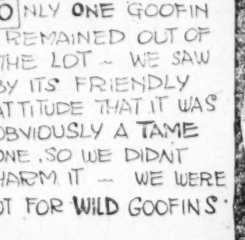 ONLY ONE GOOFIN
REMAINED OUT OF
THE LOT - WE SAW
BY ITS FRIENDLY
ATTITUDE THAT IT WAS
OBVIOUSLY A TAME
ONE, SO WE DIDN'T
HARM IT - WE WERE
UT FOR WILD GOOFINS